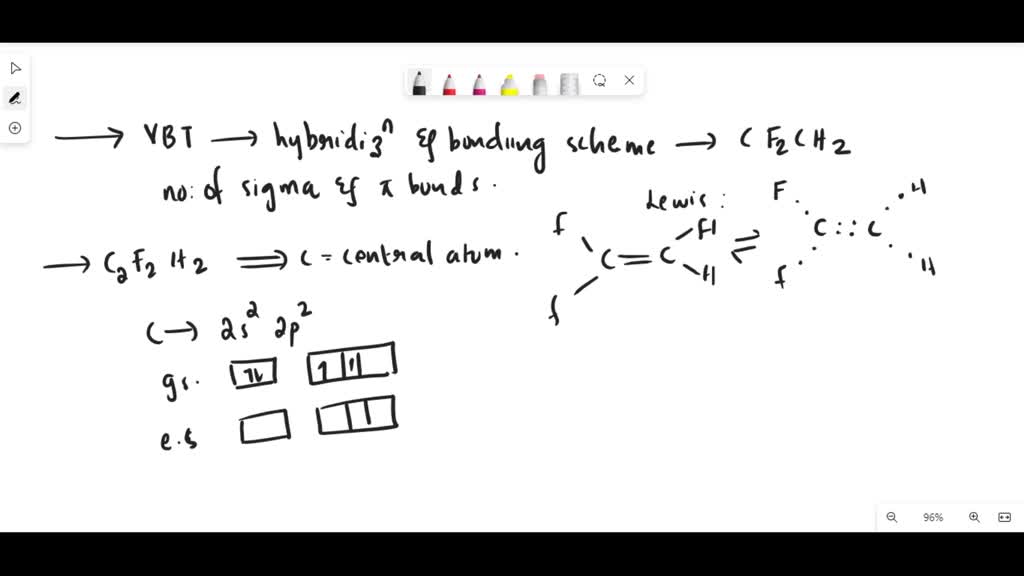 → VBT → hybridizⁿ & bonding scheme → CF₂CH₂
no: of sigma & π bonds.
Lewis:
→ C₂F₂H₂ ⟹ C = central atom.
F H
C = C
F H
⇌
F H
C :: C
F H
C → 2s² 2p²
gs.
e.s
96%